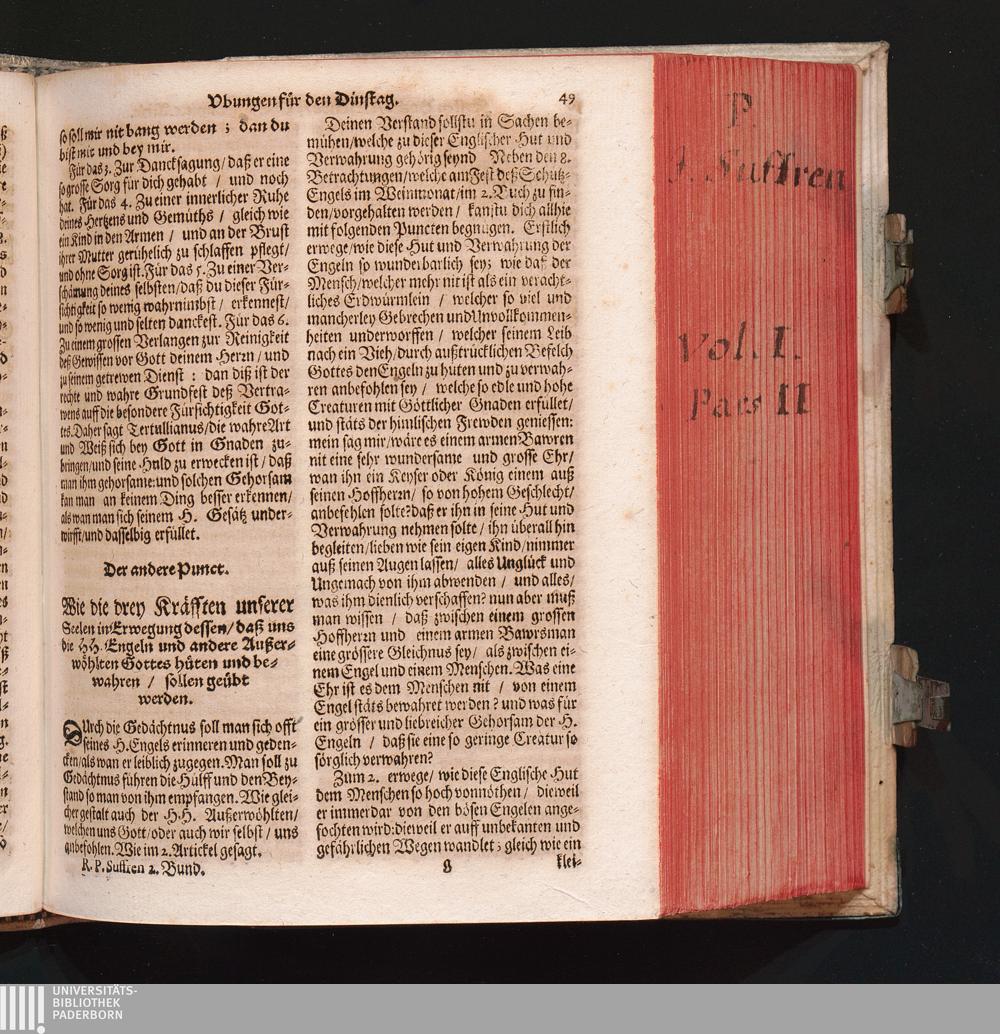 Vbungen für den Dinstag. 49
so soll mir nit bang werden ; dan du
bist mit und bey mir.
Für das 3. Zur Dancksagung/ daß er eine
so grosse Sorg für dich gehabt / und noch
hat. Für das 4. Zu einer innerlicher Ruhe
deines Hertzens und Gemüths / gleich wie
ein Kind in den Armen / und an der Brust
ihrer Mutter gerühelich zu schlaffen pflegt/
und ohne Sorg ist. Für das 5. Zu einer Ver-
schämung deines selbsten/ daß du dieser Für-
sichtigkeit so wenig wahrnimbst / erkennest/
und so wenig und selten danckest. Für das 6.
Zu einem grossen Verlangen zur Reinigkeit
deß Gewissen vor Gott deinem Herrn / und
zu seinem getrewen Dienst : dan diß ist der
rechte und wahre Grundfest deß Vertra-
wens auff die besondere Fürsichtigkeit Got-
tes. Daher sagt Tertullianus/ die wahre Art
und Weiß sich bey Gott in Gnaden zu-
bringen/ und seine Huld zu erwecken ist / daß
man ihm gehorsame: und solchen Gehorsam
kan man an keinem Ding besser erkennen/
als wan man sich seinem H. Gesätz under-
wirfft/ und dasselbig erfüllet.
Der andere Punct.
Wie die drey Kräfften unserer
Seelen in Erwegung dessen/ daß uns
die HH. Engeln und andere Außer-
wöhlten Gottes hüten und be-
wahren / sollen geübt
werden.
DUrch die Gedächtnus soll man sich offt
seines H. Engels erinneren und geden-
cken/ als wan er leiblich zugegen. Man soll zu
Gedächtnus führen die Hülff und den Bey-
stand so man von ihm empfangen. Wie glei-
cher gestalt auch der HH. Außerwöhlten/
welchen uns Gott/ oder auch wir selbst / uns
anbefohlen. Wie im 2. Artickel gesagt.
R. P. Suffren 2. Bund.
Deinen Verstand solistu in Sachen be-
mühen/ welche zu dieser Englischer Hut und
Verwahrung gehörig seynd Neben den 8.
Betrachtungen/ welche am Fest deß Schutz-
Engels im Weinmonat/ im 2. Buch zu fin-
den/ vorgehalten werden / kanstu dich allhie
mit folgenden Puncten begnügen. Erstlich
erwege/ wie diese Hut und Verwahrung der
Engeln so wunderbarlich sey; wie daß der
Mensch/ welcher mehr nit ist als ein veracht-
liches Erdwürmlein / welcher so viel und
mancherley Gebrechen und Unvollkommen-
heiten underworffen / welcher seinem Leib
nach ein Vieh/ durch außtrücklichen Befelch
Gottes den Engeln zu hüten und zu verwah-
ren anbefohlen sey / welche so edle und hohe
Creaturen mit Göttlicher Gnaden erfüllet/
und stäts der himlischen Frewden geniessen:
mein sag mir/ wäre es einem armen Bawren
nit eine sehr wundersame und grosse Ehr/
wan ihn ein Keyser oder König einem auß
seinen Hoffherrn/ so von hohem Geschlecht/
anbefehlen solte? daß er ihn in seine Hut und
Verwahrung nehmen solte / ihn überall hin
begleiten/ lieben wie sein eigen Kind/ nimmer
auß seinen Augen lassen/ alles Unglück und
Ungemach von ihm abwenden / und alles/
was ihm dienlich verschaffen? nun aber muß
man wissen / daß zwischen einem grossen
Hoffherrn und einem armen Bawrsman
eine grössere Gleichnus sey/ als zwischen ei-
nem Engel und einem Menschen. Was eine
Ehr ist es dem Menschen nit / von einem
Engel stäts bewahret werden ? und was für
ein grösser und liebreicher Gehorsam der H.
Engeln / daß sie eine so geringe Creatur so
sörglich verwahren?
Zum 2. erwege/ wie diese Englische Hut
dem Menschen so hoch vonnöthen / dieweil
er immerdar von den bösen Engelen ange-
fochten wird: dieweil er auff unbekanten und
gefährlichen Wegen wandlet; gleich wie ein
g klei-
P.
J. Suffren
Vol. I.
Pars II
UNIVERSITÄTS-
BIBLIOTHEK
PADERBORN